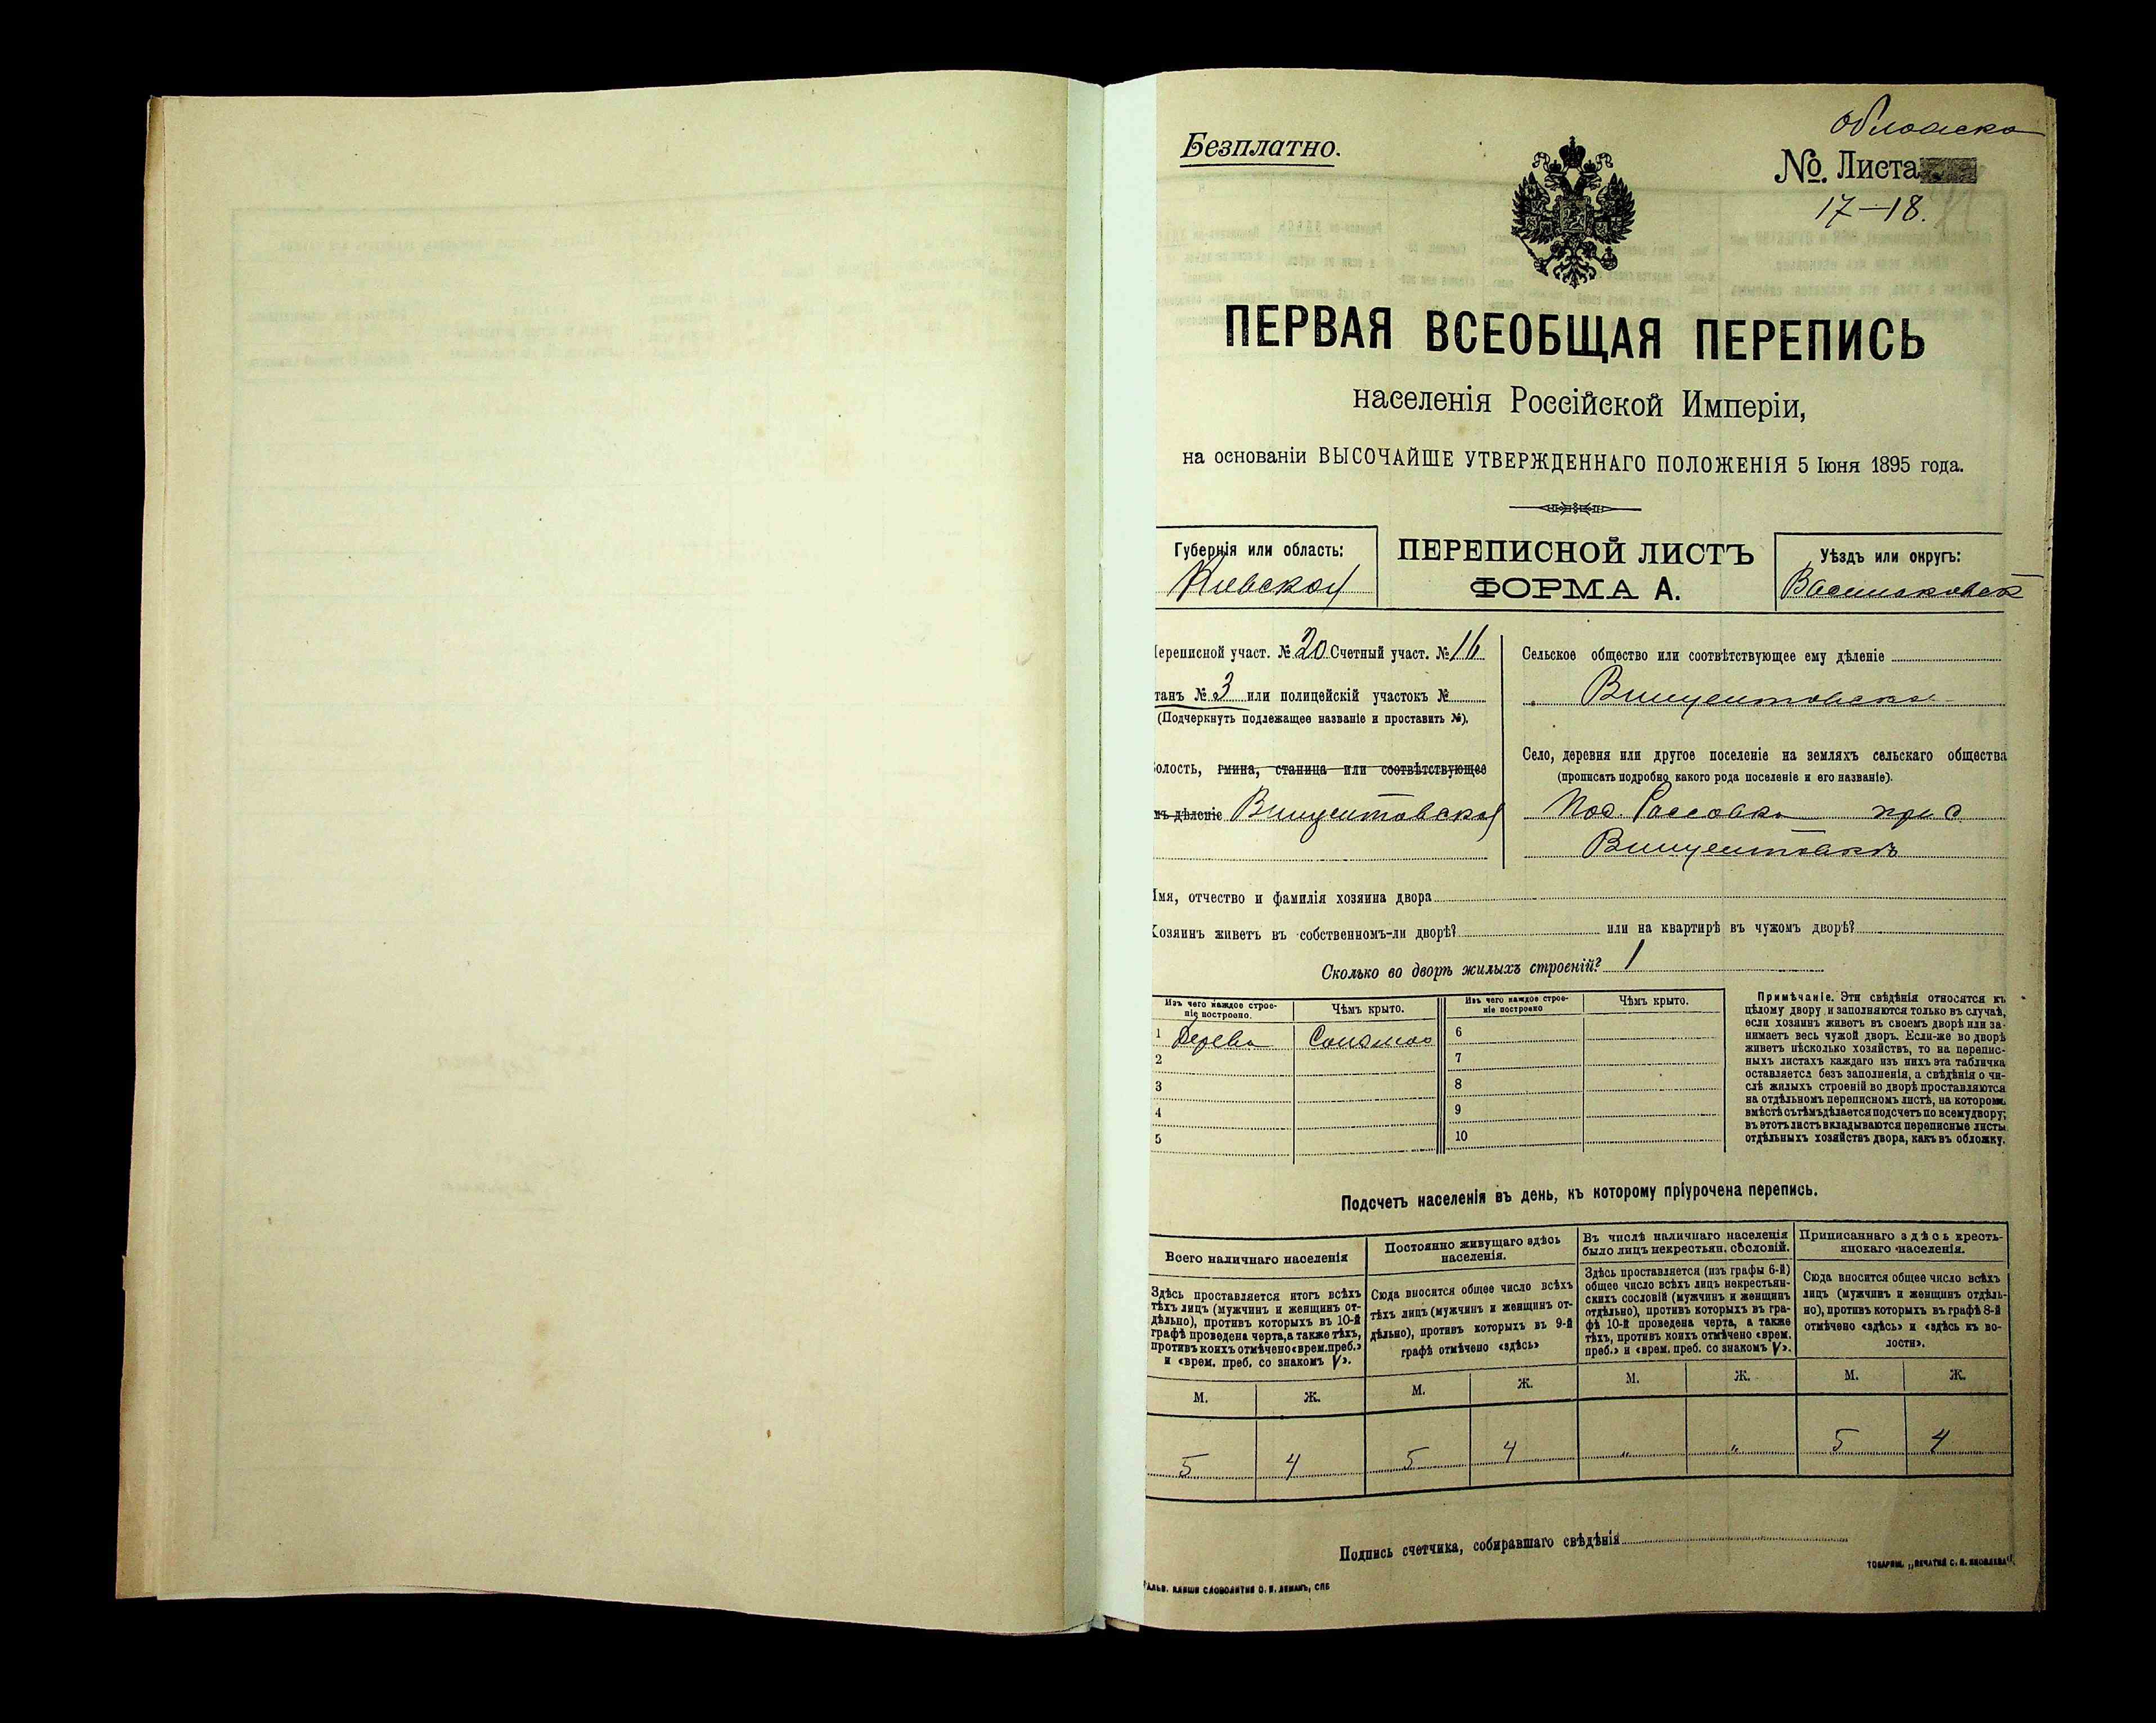 Безплатно.
обложка
№. Листа
17–18.
ПЕРВАЯ ВСЕОБЩАЯ ПЕРЕПИСЬ
населенія Россійской Имперіи,
на основаніи ВЫСОЧАЙШЕ УТВЕРЖДЕННАГО ПОЛОЖЕНІЯ 5 Іюня 1895 года.
Губернія или область:
Кіевская
ПЕРЕПИСНОЙ ЛИСТЪ
ФОРМА А.
Уѣздъ или округъ:
Васильковск
Переписной участ. № 20 Счетный участ. № 16
танъ № 3 или полицейскій участокъ №
(Подчеркнуть подлежащее названіе и проставить №).
волость, гмина, станица или соотвѣтствующее
мъ дѣленіе Винцентовская
Сельское общество или соотвѣтствующее ему дѣленіе
Винцентовское
Село, деревня или другое поселеніе на земляхъ сельскаго общества
(прописать подробно какого рода поселеніе и его названіе).
при с
Винцентовкѣ
Имя, отчество и фамилія хозяина двора
Хозяинъ живетъ въ собственномъ-ли дворѣ? или на квартирѣ въ чужомъ дворѣ?
Сколько во дворѣ жилыхъ строеній? 1
Изъ чего каждое строе-
ніе построено.
Чѣмъ крыто.
Изъ чего каждое строе-
ніе построено
Чѣмъ крыто.
1 Дерева Соломою 6
2 7
3 8
4 9
5 10
Примѣчаніе. Эти свѣдѣнія относятся къ
цѣлому двору и заполняются только въ случаѣ,
если хозяинъ живетъ въ своемъ дворѣ или за-
нимаетъ весь чужой дворъ. Если-же во дворѣ
живетъ нѣсколько хозяйствъ, то на перепис-
ныхъ листахъ каждаго изъ нихъ эта табличка
оставляется безъ заполненія, а свѣдѣнія о чи-
слѣ жилыхъ строеній во дворѣ проставляются
на отдѣльномъ переписномъ листѣ, на которомъ
вмѣстѣ съ тѣмъ дѣлается подсчетъ по всему двору;
въ этотъ листъ вкладываются переписные листы
отдѣльныхъ хозяйствъ двора, какъ въ обложку.
Подсчетъ населенія въ день, къ которому пріурочена перепись.
Всего наличнаго населенія
Здѣсь проставляется итогъ всѣхъ
тѣхъ лицъ (мужчинъ и женщинъ от-
дѣльно), противъ которыхъ въ 10-й
графѣ проведена черта, а также тѣхъ,
противъ коихъ отмѣчено «врем. преб.»
и «врем. преб. со знакомъ V».
Постоянно живущаго здѣсь
населенія.
Сюда вносится общее число всѣхъ
тѣхъ лицъ (мужчинъ и женщинъ от-
дѣльно), противъ которыхъ въ 9-й
графѣ отмѣчено «здѣсь»
Въ числѣ наличнаго населенія
было лицъ некрестьян. сословій.
Здѣсь проставляется (изъ графы 6-й)
общее число всѣхъ лицъ некрестьян-
скихъ сословій (мужчинъ и женщинъ
отдѣльно), противъ которыхъ въ гра-
фѣ 10-й проведена черта, а также
тѣхъ, противъ коихъ отмѣчено «врем.
преб.» и «врем. преб. со знакомъ V».
Приписаннаго здѣсь кресть-
янскаго населенія.
Сюда вносится общее число всѣхъ
лицъ (мужчинъ и женщинъ отдѣль-
но), противъ которыхъ въ графѣ 8-й
отмѣчено «здѣсь» и «здѣсь къ во-
лости».
М. Ж. М. Ж. М. Ж. М. Ж.
5 4 5 4 „ „ 5 4
Подпись счетчика, собиравшаго свѣдѣнія
ТОВАРИЩ. „ПЕЧАТНЯ С. П. ЯКОВЛЕВА“
СЛОВОЛИТНЯ О. И. ЛЕМАНЪ, СПБ